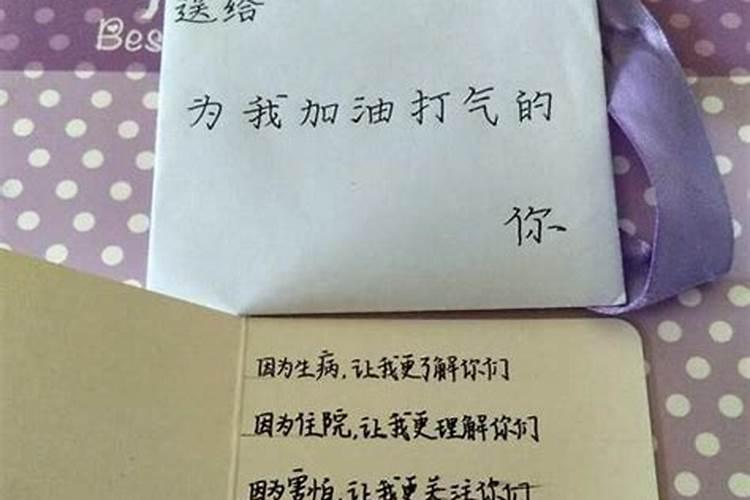 Bes
送给
为我加油打气的
你
因为生病，让我更了解你们
因为住院，让我更理解你们
因为害怕，让我更关注你们